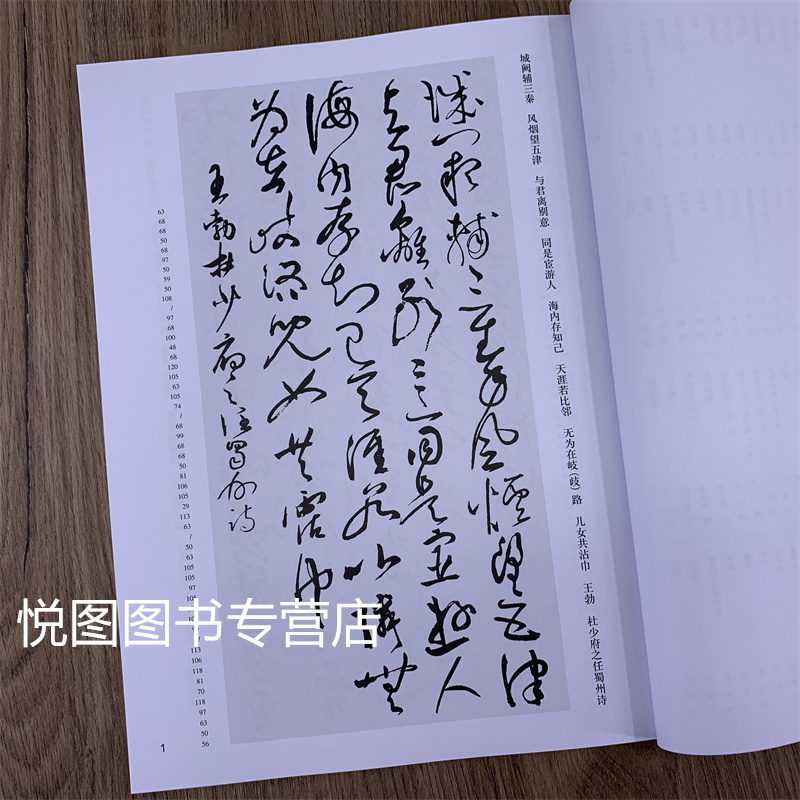 城阙辅三秦 风烟望五津 与君离别意 同是宦游人 海内存知己 天涯若比邻 无为在岐(歧)路 儿女共沾巾 王勃 杜少府之任蜀州诗
城闕輔三秦風煙望五津
与君離別意同是宦遊人
海内存知己天涯若比鄰無
为在岐路兒女共霑巾
王勃杜少府之任蜀州诗
63
68
68
50
68
97
50
59
50
108
/
97
68
100
48
68
120
105
63
105
74
/
68
99
68
68
50
81
106
105
29
113
63
/
50
63
105
105
97
113
106
118
81
70
118
97
63
50
56
1
悦图图书专营店